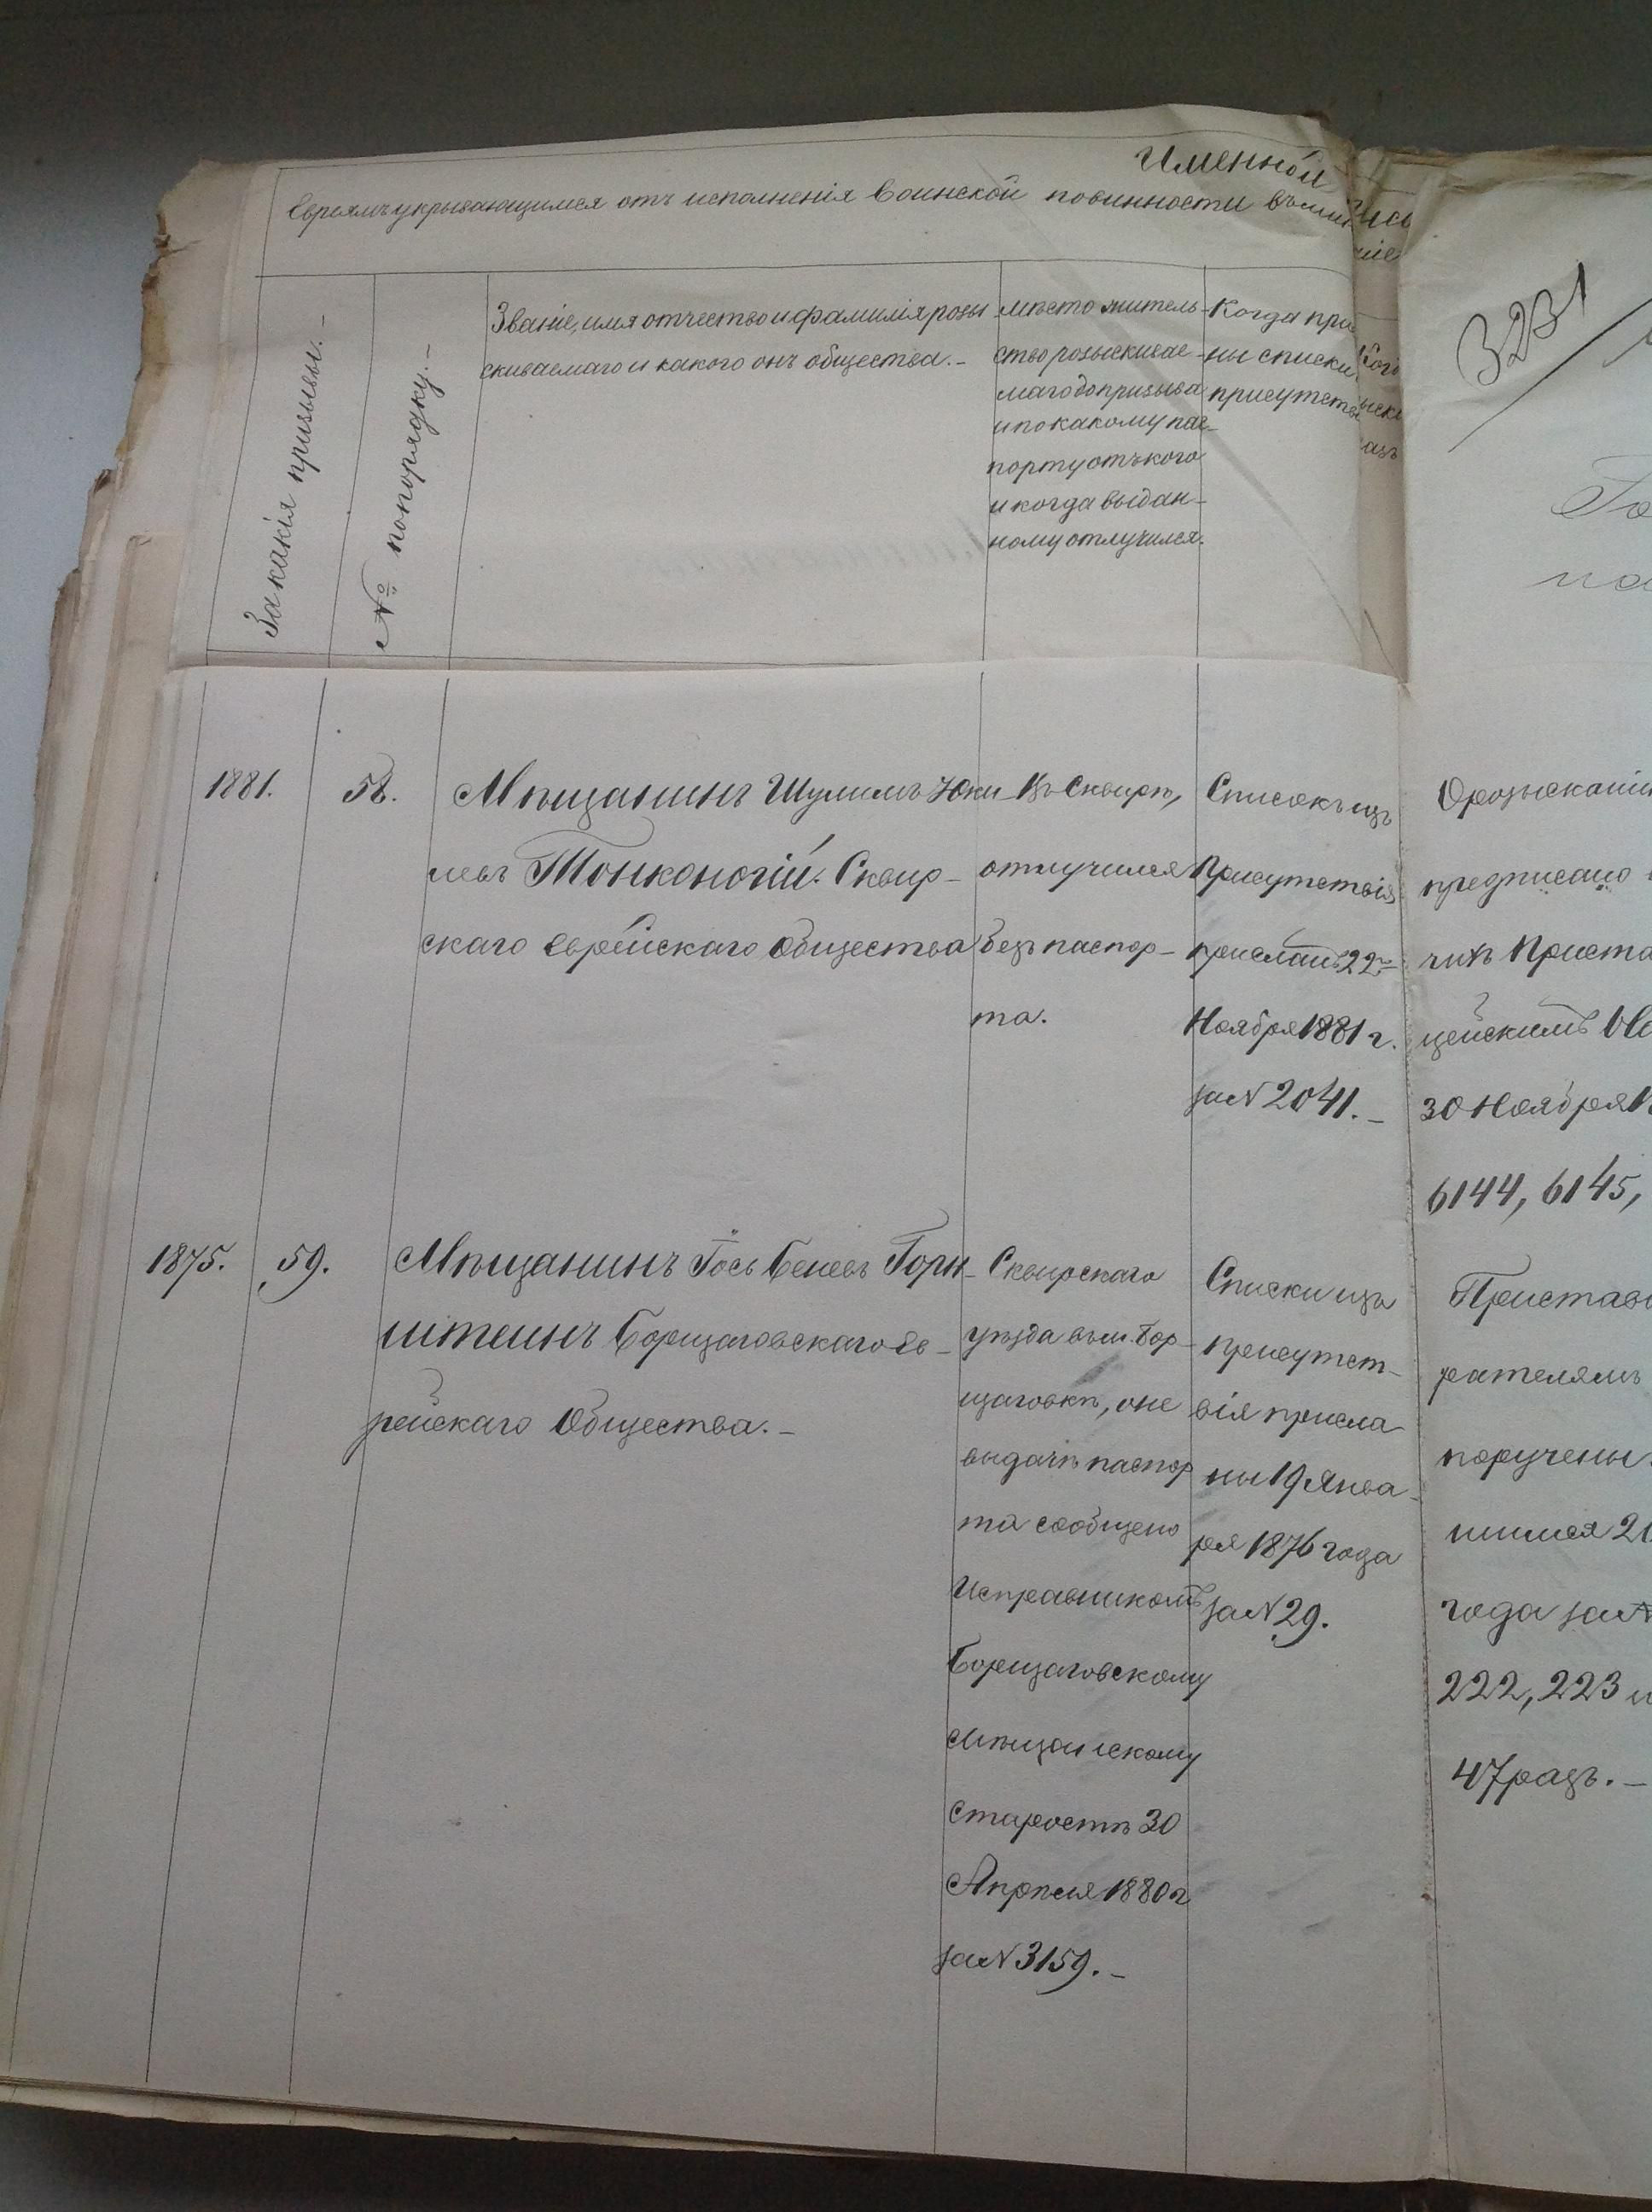 Именной
Евреямъ укрывающимся отъ исполненія воинской повинности
За какія призывы.-
№ по порядку.-
Званіе, имя отчество и фамилія розы
скиваемаго и какого онъ общества.-
Мѣсто житель-
ство розыскивае-
маго до призыва
и по какому пас-
порту отъ кого
и когда выдан-
ному отлучился.
Когда при
ны списки
присутств
3231
1881.
58.
Мѣщанинъ Шулимъ Юки
левъ Тонконогій. Сквир-
скаго Еврейскаго Общества
Въ Сквирѣ,
отлучился
безъ паспор-
та.
Списокъ изъ
Присутствія
присланъ 22го
Ноября 1881 г.
за N 2041.-
О розыскании
предписано
чить Приста
цейскимъ
30 Ноября 1
6144, 6145,
1875.
59.
Мѣщанинъ Гось Беневъ Горн
штеинъ Борщаговскаго Ев-
рейскаго Общества.-
Сквирскаго
уѣзда въ м. Бор-
щаговкѣ, о не
выдачѣ паспор
та сообщено
Исправникомъ
Борщаговскому
Мѣщанскому
Старостѣ 30
Апрѣля 1880 г
за N 3159.-
Списки изъ
присутст-
вія присла-
ны 19 Янва-
ря 1876 года
за N 29.
Пристав
рателямъ
поручены
шимся 21
года за N
222, 223 и
47 разъ.-